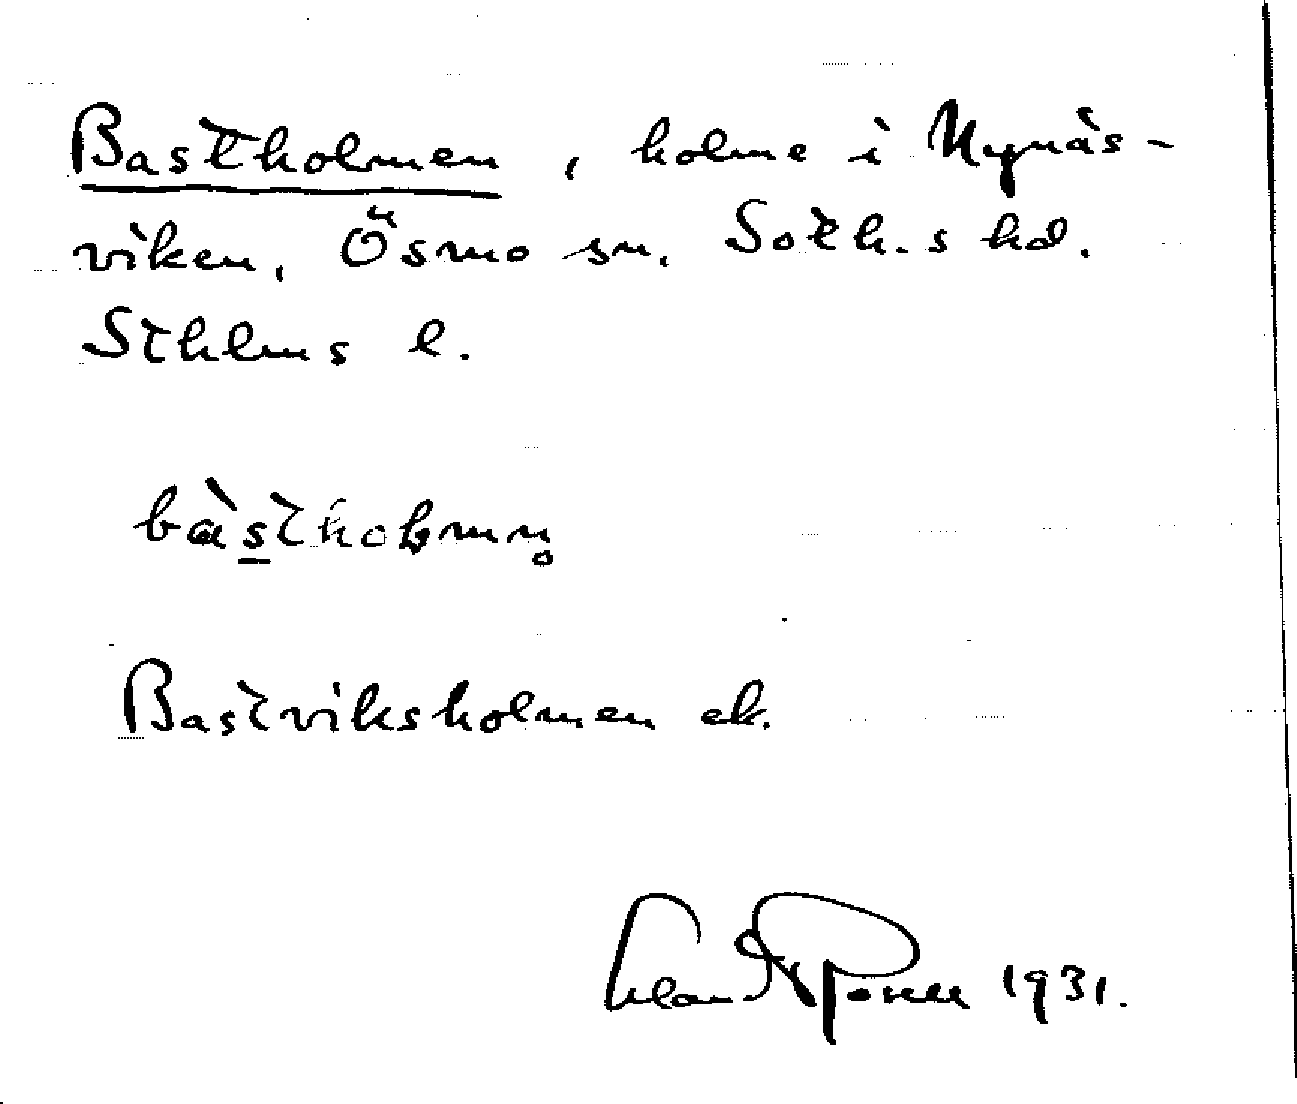 Bastholmen, holme i Nynäs-
viken, Ösmo sn, Soth.s hd.
Sthlms l.
bàstholmn̥
Bastviksholmen ek.
1931.